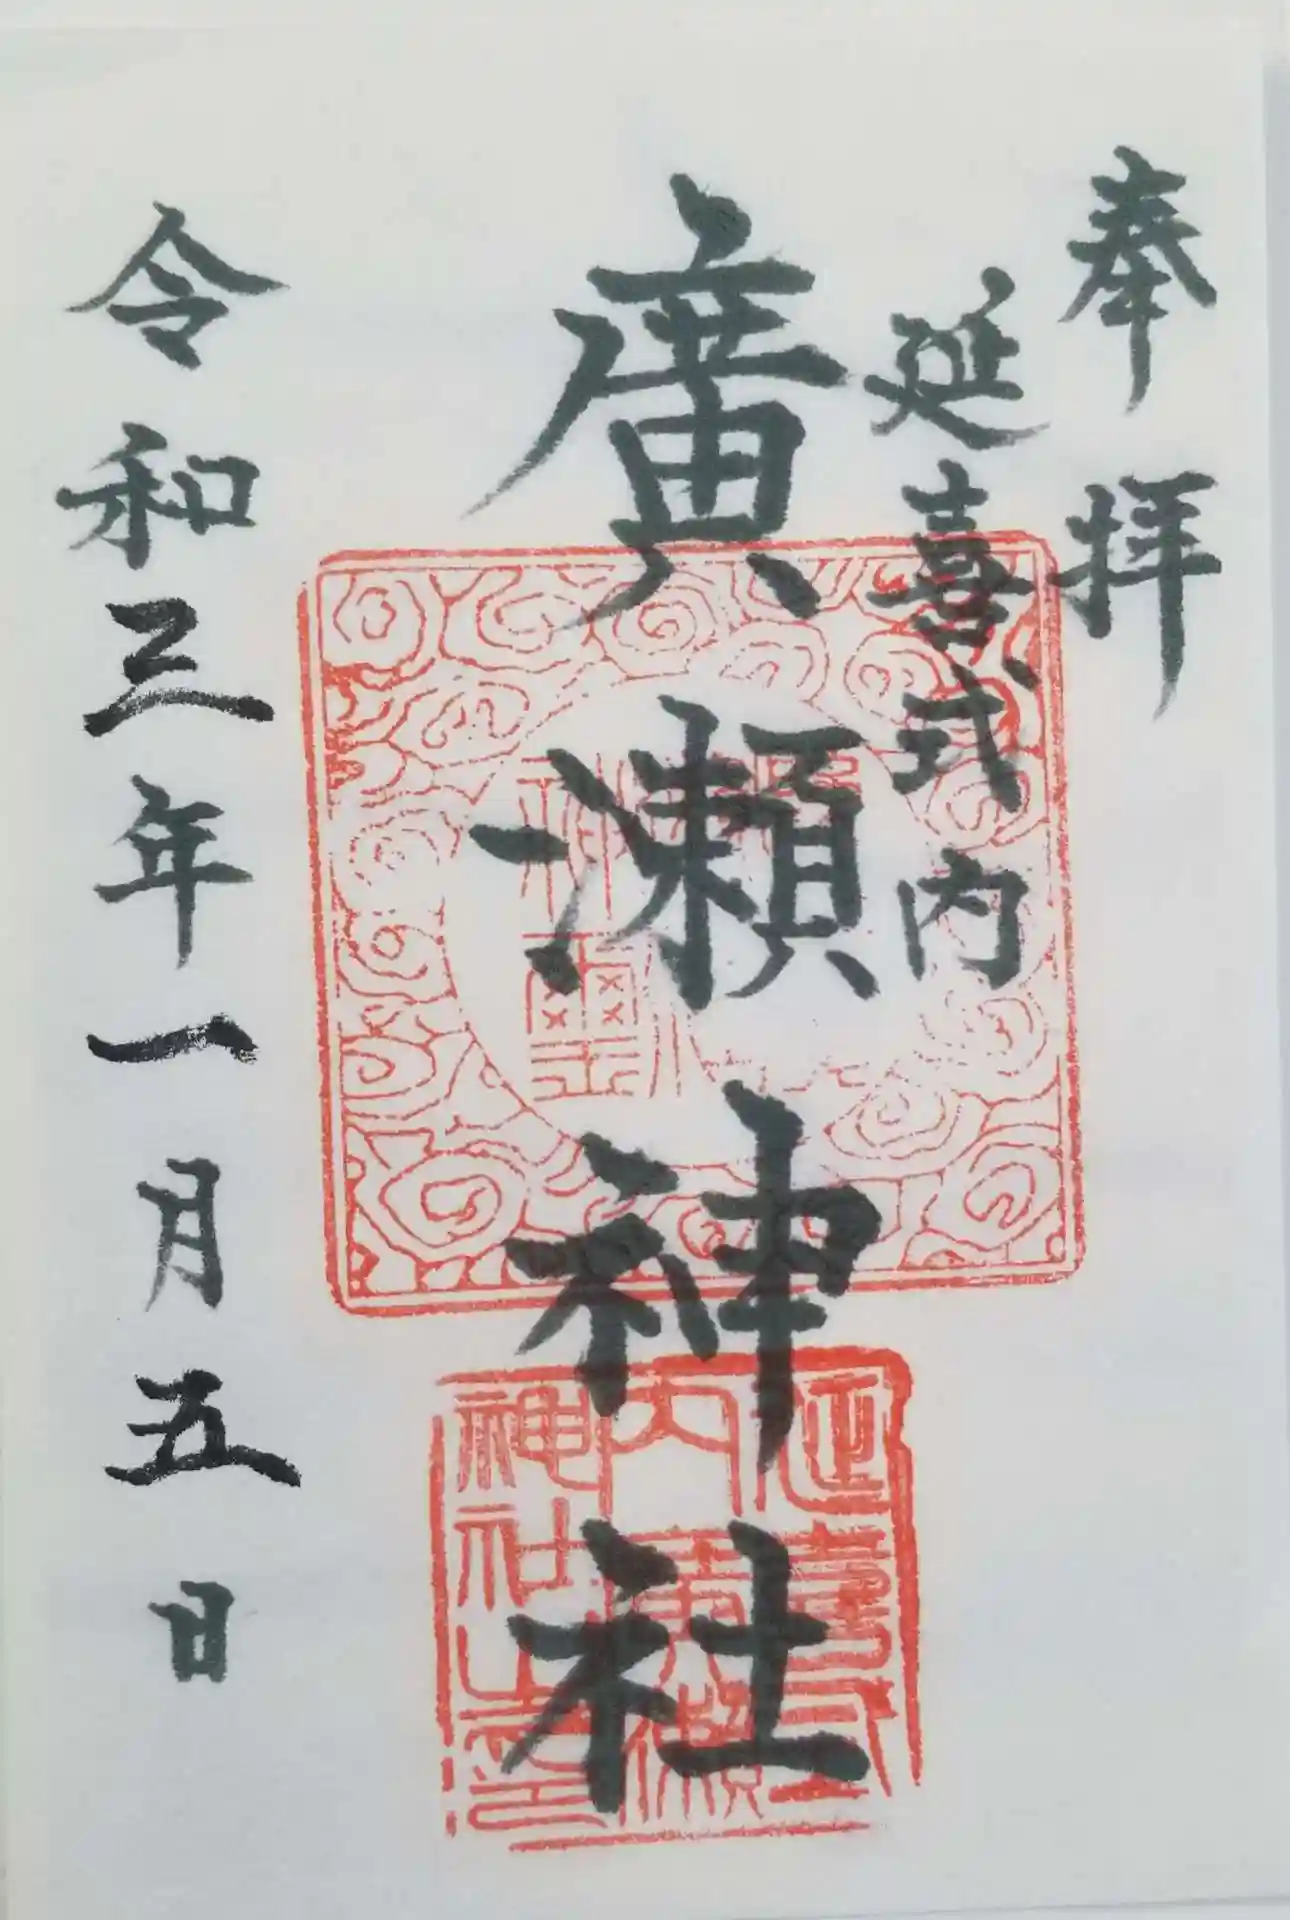 奉拝
延喜式内
廣瀬神社
令和三年一月五日
延喜式
内廣瀬
神社之印